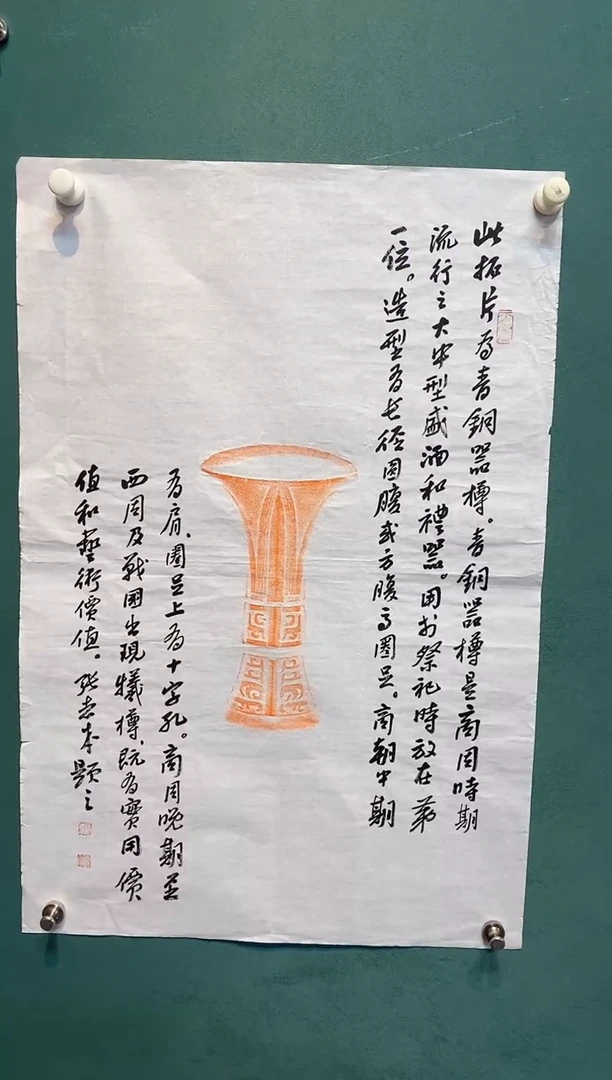 此拓片为青銅器樽。青銅器樽是商周時期
流行之大中型盛酒和禮器。用於祭祀時放在第
一位。造型为长徑圆腹或方腹高圈足。商朝中期
为肩、圈足上为十字孔。商周晚期至
西周及戰國出現犧樽、既为實用價
值和藝術價值。张志本題之